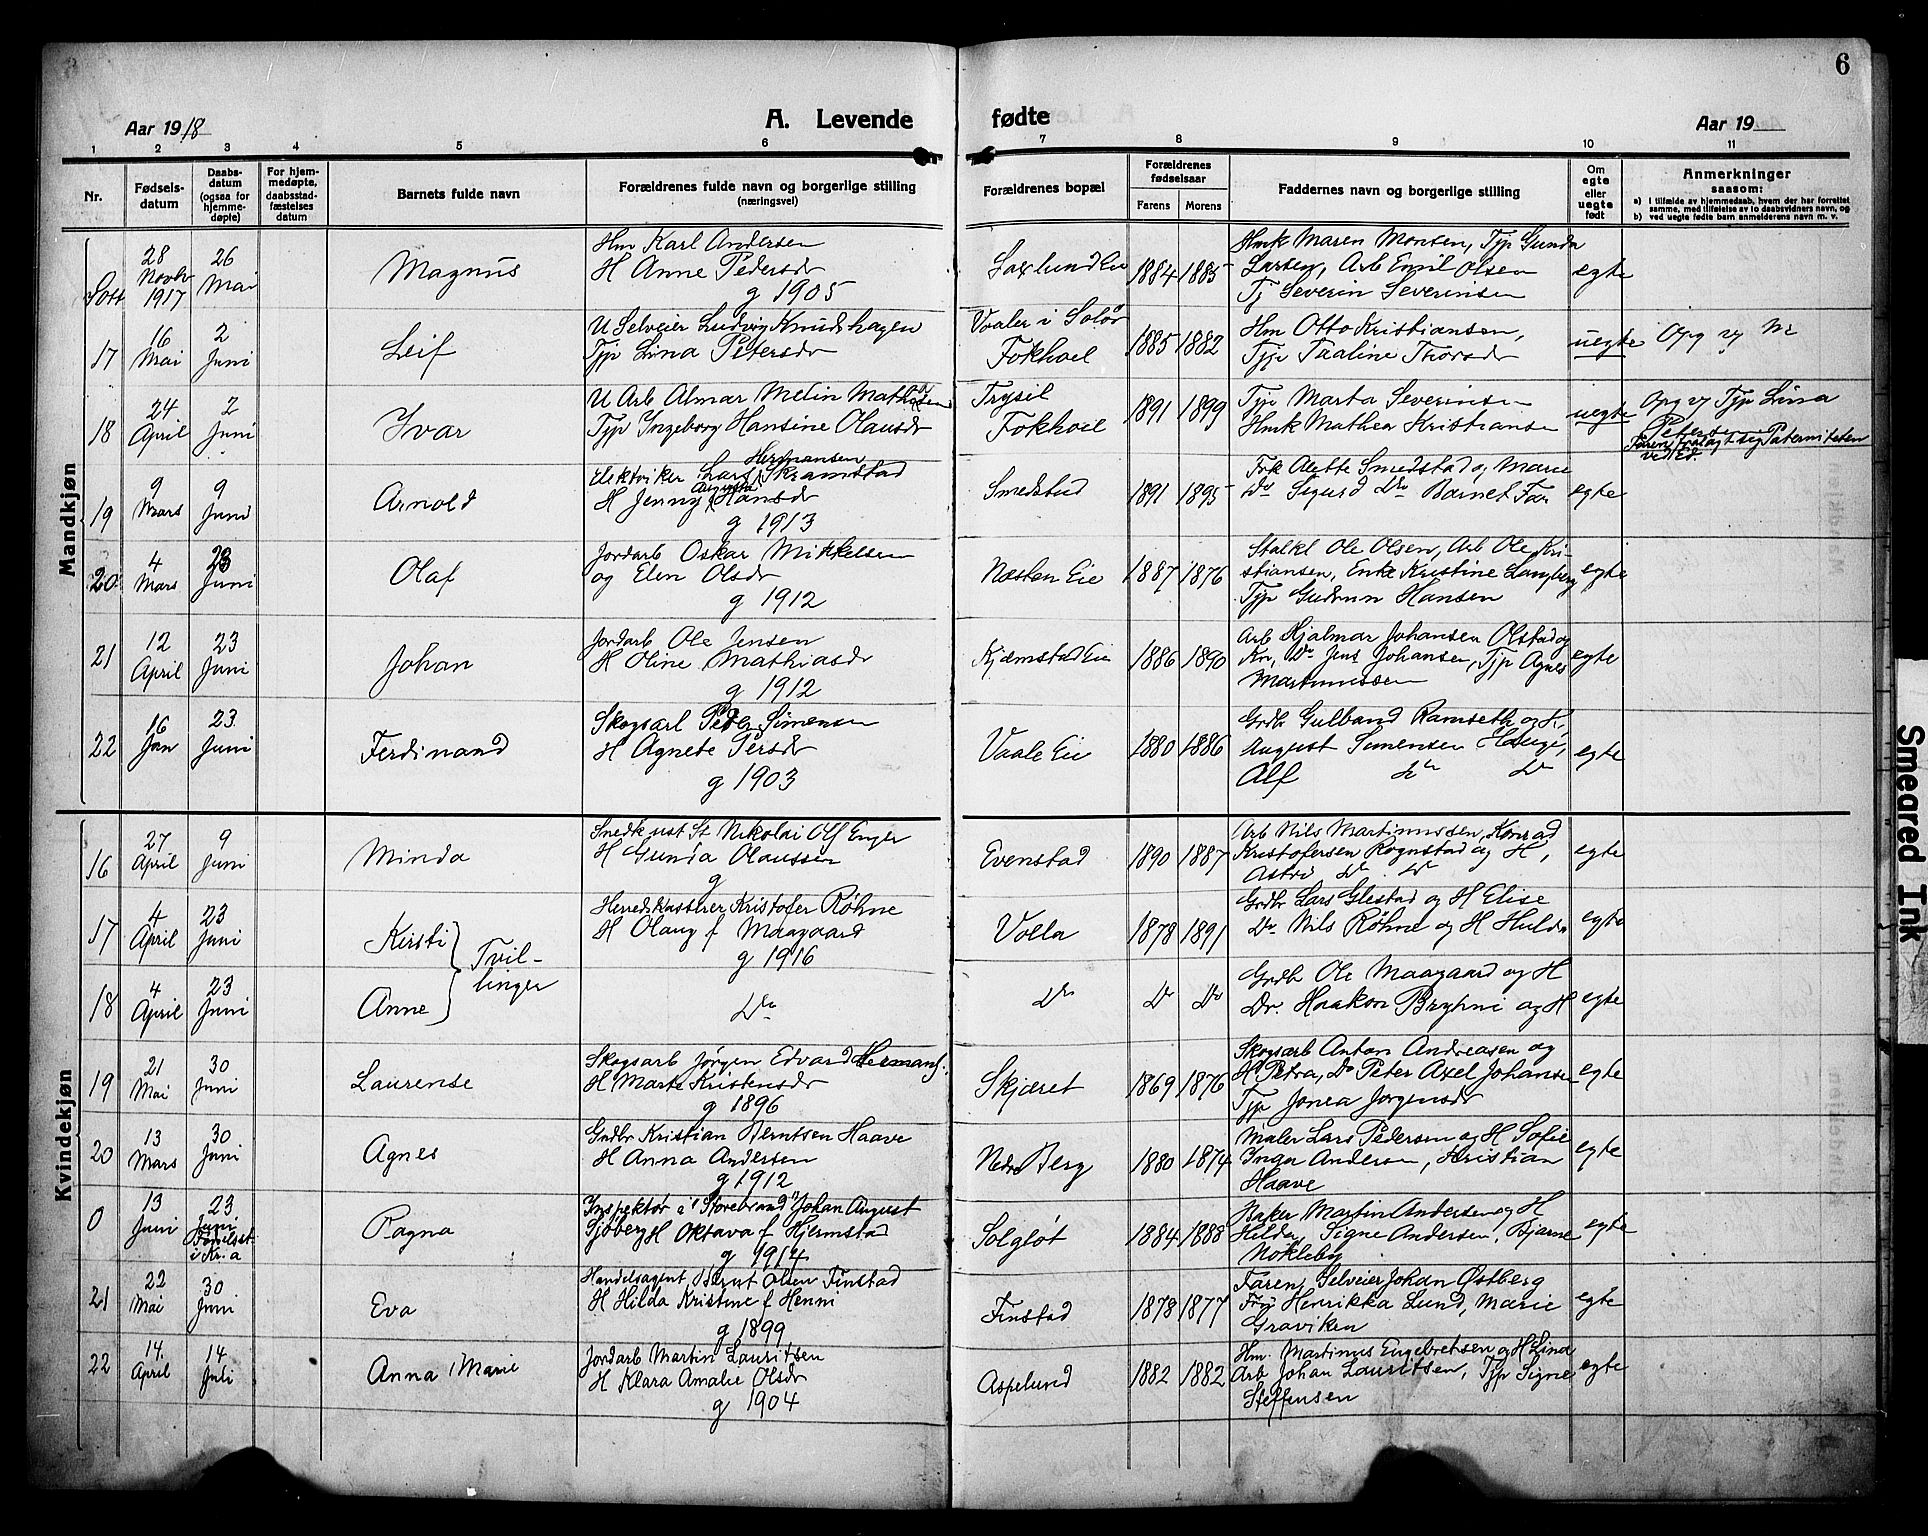 6
Aar 1918
A. Levende fødte
Aar 19
1 2 3 4 5 6 7 8 9 10 11
Nr.
Fødsels-
datum
Daabs-
datum
(ogsaa for
hjemme-
døpte)
For hjem-
medøpte,
daabsstad-
fæstelses
datum
Barnets fulde navn
Forældrenes fulde navn og borgerlige stilling
(næringsvei)
Forældrenes bopæl
Forældrenes
fødselsaar
Farens Morens
Faddernes navn og borgerlige stilling
Om
egte
eller
uegte
født
Anmerkninger
saasom:
a) i tilfælde av hjemmedaab, hvem der har forrettet
samme, med tilføielse av to daabsvidners navn, og
b) ved uegte fødte barn anmelderens navn m. v.
Mandkjøn
28 Novbr 1917
26 Mai
Magnus
Hm Karl Andersen
H Anne Pedersdr
g 1905
Eie
1884 1885
Hmk Maren Monsen, Tjp Gunda
Larsen, Arb Emil Olsen
Tj Severin Severinsen
egte
17
16 Mai
2 Juni
Leif
U Selveier Ludvig Knudshagen
Tjp Lina Petersdr
Vaaler i Solør
Fokhoel
1885 1882
Hm Otto Kristiansen,
Tjp Paaline Thorsdr
uegte
Opg av M
18
24 April
2 Juni
Ivar
U Arb Almar Melin
Tjp Ingeborg Hansine Olausdr
Trysil
Fokhoel
1891 1899
Tjp Marta Severinsen
Hmk Mathea Kristiansen
uegte
Opg av Tjp Lina
Faren fralagt sig Paterniteten
ved Ed.
19
9 Mars
9 Juni
Arnold
Hermansen
Elektriker Lars Skramstad
H Jenny Hansdr
g 1913
Smedstad
1891 1895
Frk Alette Smedstad og Marie
Do Sigurd Do Barnet Far
egte
20
4 Mars
23 Juni
Olaf
Jordarb Oskar Mikkelsen
og Elen Olsdr
g 1912
Næsten Eie
1887 1876
Stalkl Ole Olsen, Arb Ole Kri-
stiansen, Enke Kristine Langberg
Tjp Gudrun Hansen
egte
21
12 April
23 Juni
Johan
Jordarb Ole Jensen
H Oline Mathiasdr
g 1912
Kjemstad Eie
1886 1890
Arb Hjalmar Johansen Olstad og
Kn, Do Jens Johansen, Tjp Agnes
Martinussen
egte
22
16 Jan
23 Juni
Ferdinand
Skogsarb Peder Simensen
H Agnete Persdr
g 1903
Vaale Eie
1880 1886
Grdbr Gulbrand Ramseth og H,
August Simensen Hauge,
Alf Do Do
egte
Kvindekjøn
16
27 April
9 Juni
Minda
Snedk ust St Nikolai Olf Enger
H Gunda Olaussen
g
Evenstad
1890 1887
Arb Nils Martinussen, Konrad
Kristofersen Rognstad og H,
Astri Do Do
egte
17
4 April
23 Juni
Kirsti
Tvil-
linger
Herredskasserer Kristofer Røhne
H Olaug f Maagaard
g 1916
Volla
1878 1891
Grdbr Lars Glestad og H Elise
Do Nils Røhne og H Hulda
egte
18
4 April
23 Juni
Anne
Do
Do
Do Do
Grdbr Ole Maagaard og H
Do. Haakon Bryhni og H
egte
19
21 Mai
30 Juni
Laurense
Skogsarb Jørgen Edvard Hermans.
H Marte Kristensdr
g 1896
Skjæret
1869 1876
Skogsarb Anton Andreasen og
H Petra, Do Peter Axel Johansen
Tjp Jonea Jørgensdr
egte
20
13 Mars
30 Juni
Agnes
Grdbr Kristian Berntsen Haave
H Anna Andersen
g 1912
Nedre Berg
1880 1874
Maler Lars Pedersen og H Sofie
Inga Andersen, Kristian
Haave
egte
0
13 Juni
23 Juni
Fødselsst
i Kr.a
Ragna
Inspektør i "Storebrand" Johan August
Sjøberg H Oktava f Hjermstad
g 1914
Solgløt
1884 1888
Baker Martin Andersen og H
Helda, Signe Andersen, Bjarne
Nökleby
egte
21
22 Mai
30 Juni
Eva
Handelsagent Bernt Olsen Finstad
H Hilda Kristine f Henni
g 1899
Finstad
1878 1877
Faren, Selveier Johan Østberg
Frk Henrikka Lund, Marie
Graviken
egte
22
14. April
14 Juli
Anna Marie
Jordarb Martin Lauritsen
H Klara Amalie Olsdr
g 1904
Aspelund
1882 1882
Hm. Martinus Engebretsen og H Lina
Arb Johan Lauritsen, Tjp Signe
Steffensen
egte
Smeared Ink